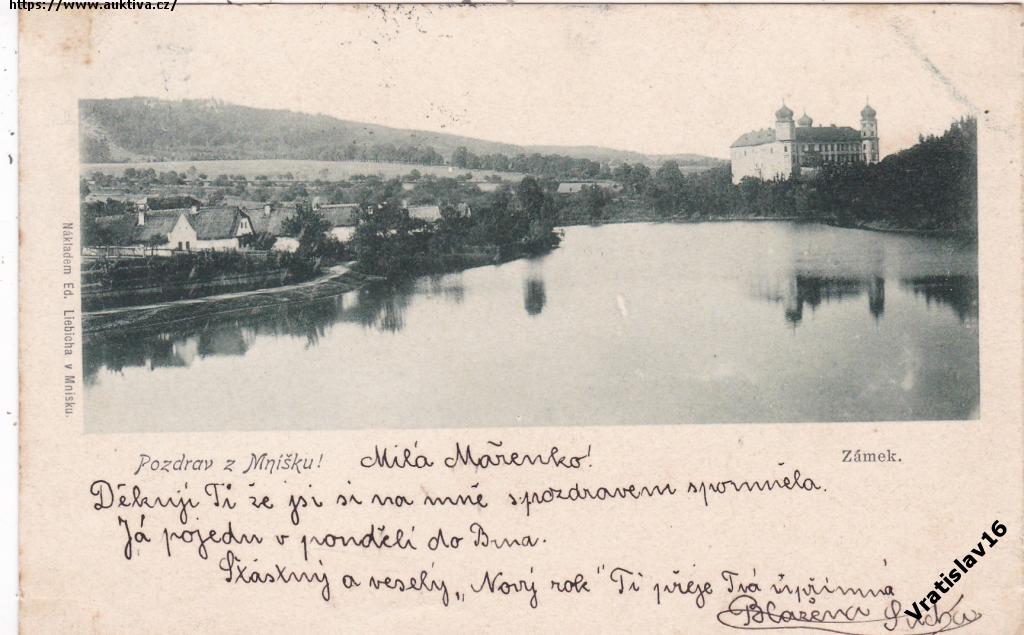 https://www.auktiva.cz/
Nákladem Ed. Liebicha v Mnisku.
Pozdrav z Mníšku!
Zámek.
Milá Mařenko!
Děkuji Ti že jsi si na mně s pozdravem spomněla.
Já pojedu v pondělí do Brna.
Šťástný a veselý „Nový rok" Ti přeje Tvá upřímná
Blažena
Vratislav16